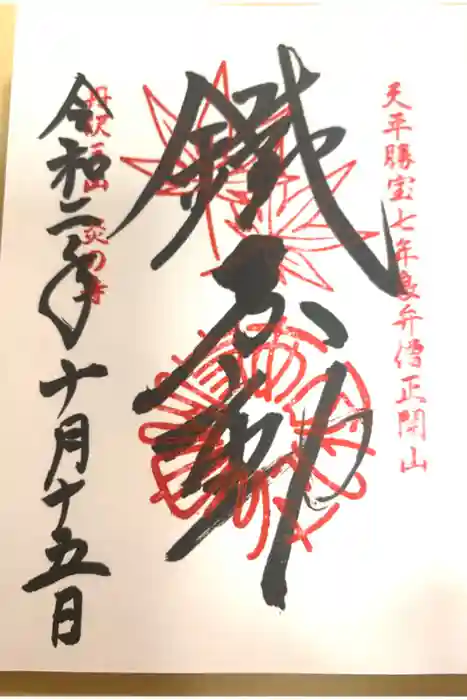 天平勝宝七年良弁僧正開山
鐵不動
丹沢大山 炎の寺
令和二年十月十五日